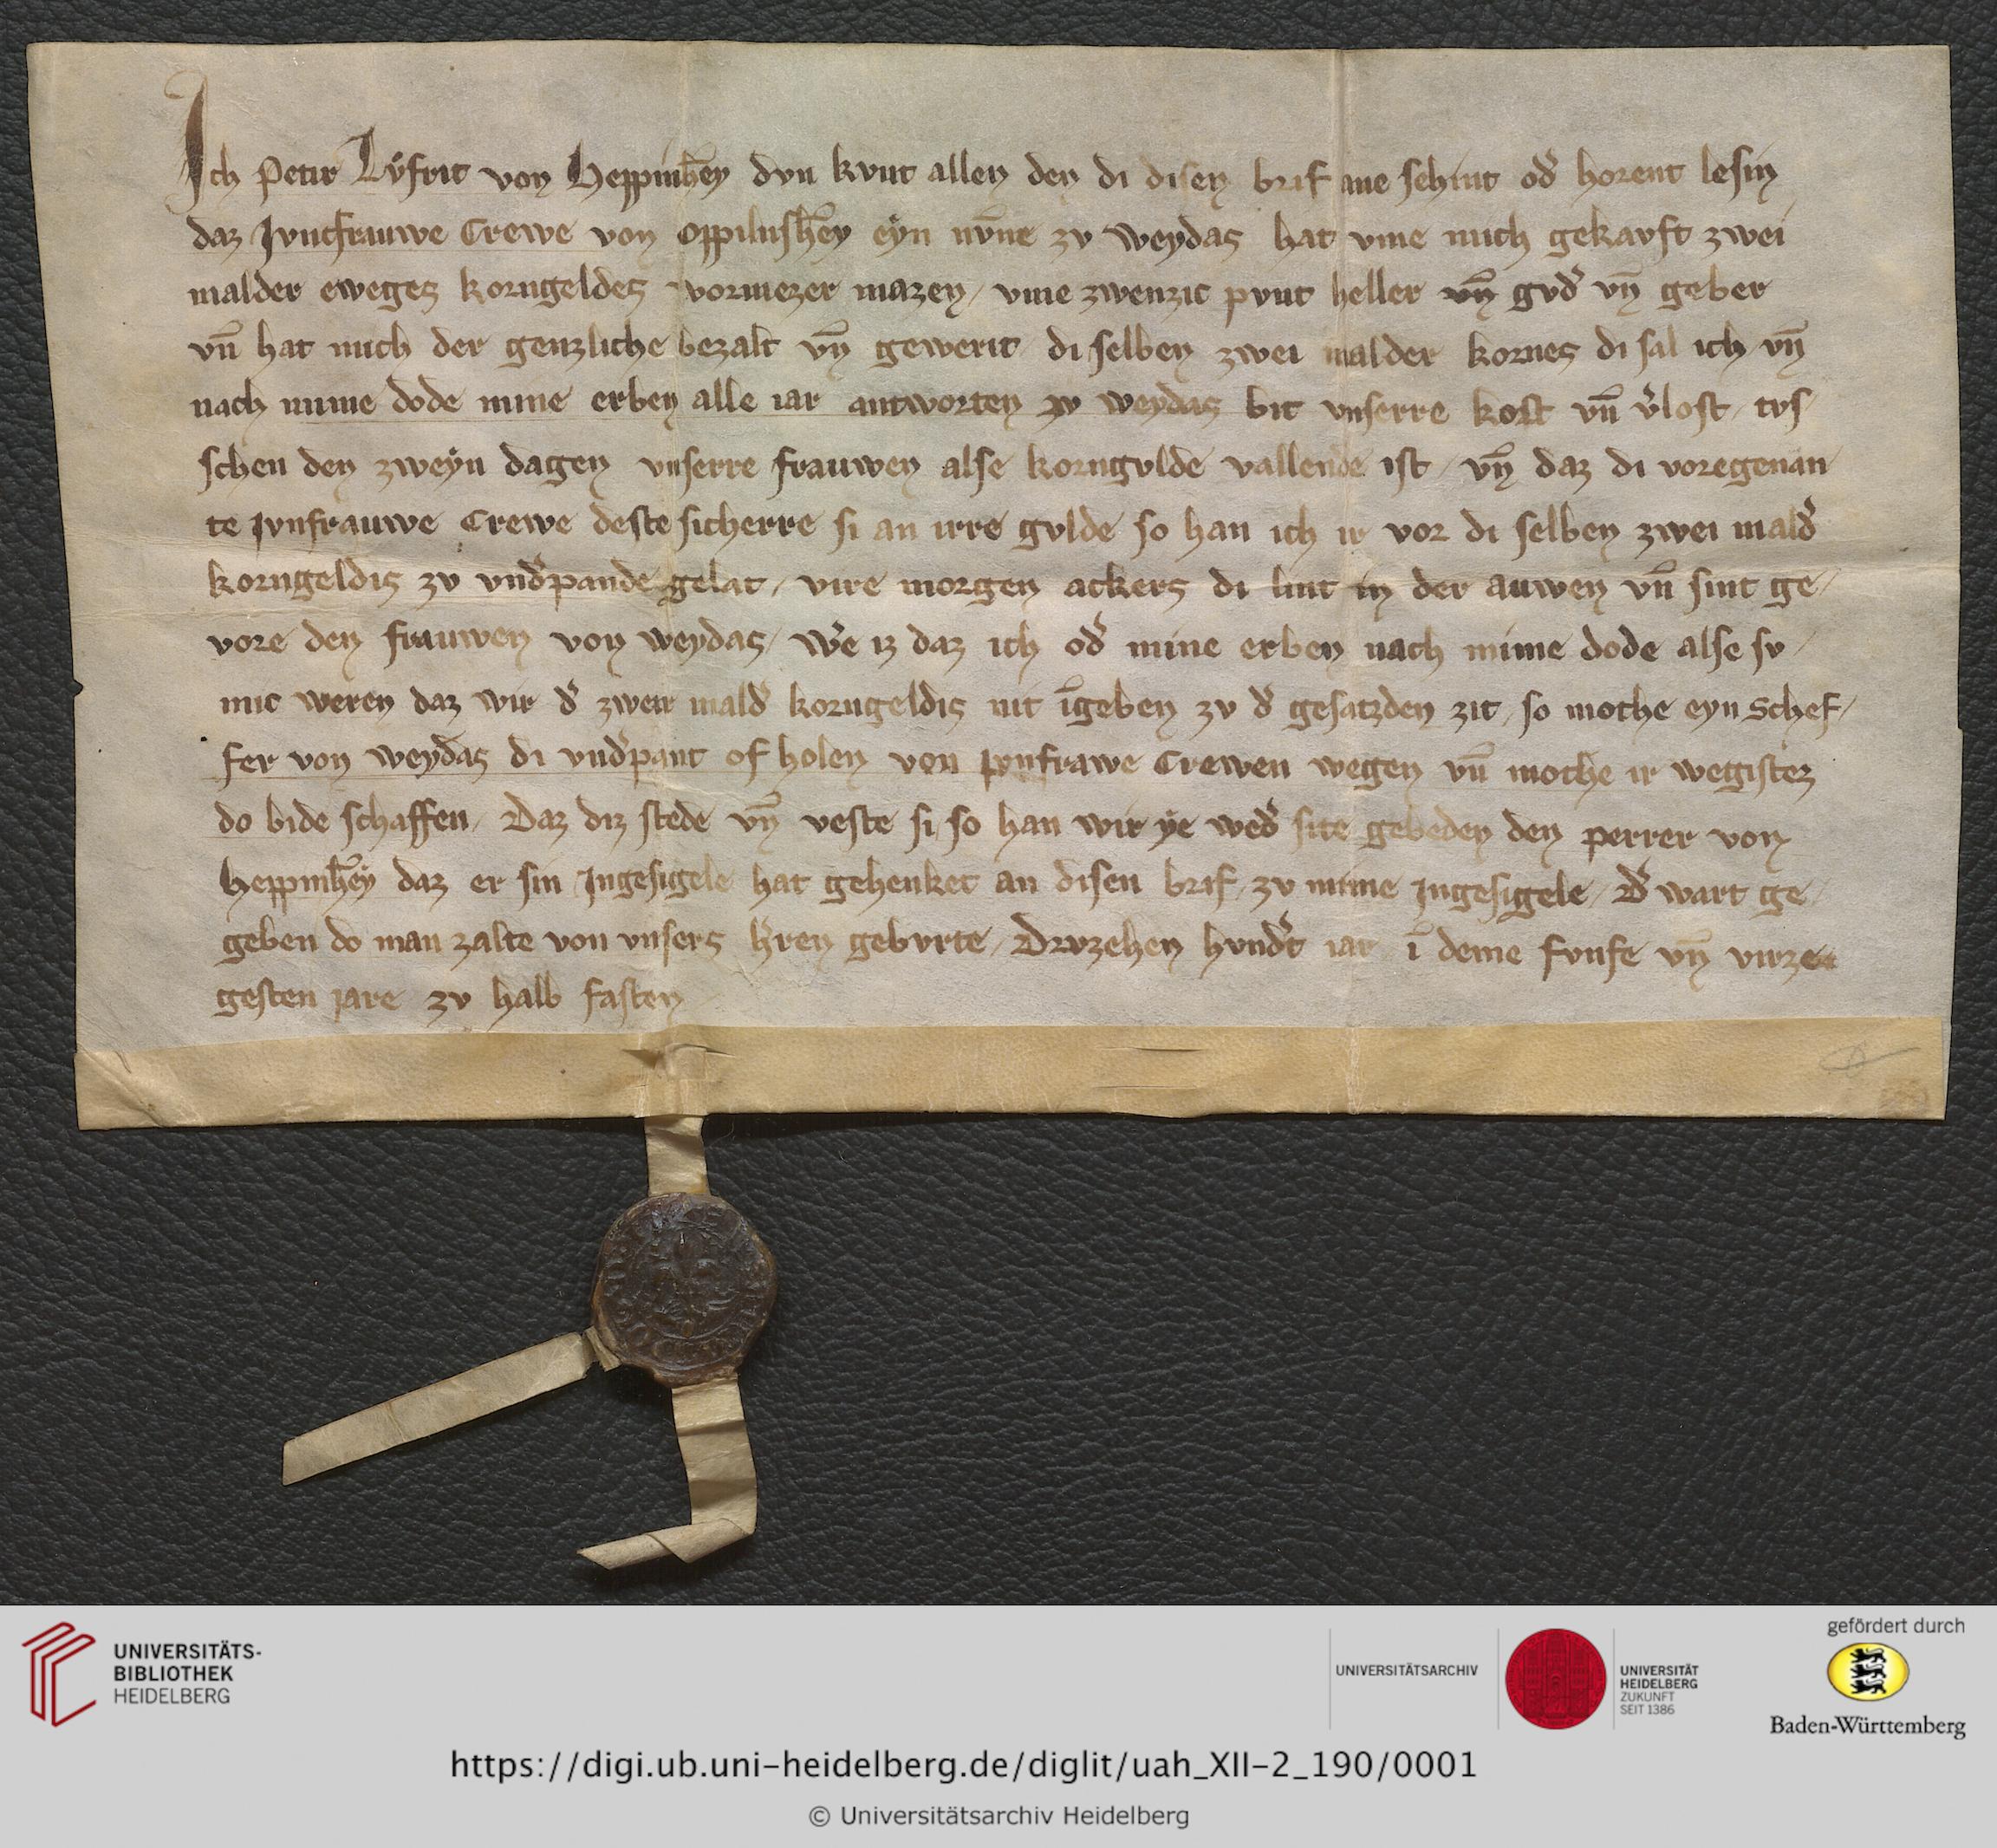 Ich Petir Lŷfrit von Heppinh̄ey dvn kvnt allen den di disen brif ane sehint od̕ horent lesin
daz Jvncfrauwe Crewe von oppilnsh̄ey eẏn nv̄ne zv weydas hat vme mich gekavft zwei
malder eweges korngeldes wormezer mazen / vme zwenzic pvnt heller vn̄ gvd̕ vn̄ geber
vn̄ hat mich der genzliche bezalt vn̄ gewerit di selben zwei malder kornes di sal ich vn̄
nach mime dode mine erben alle iar antworten zv weydas bit vnserre kost vn̄ v̕lost / tvs /
schen den zweẏn dagen vnserre frauwen alse korngvlde vallende ist / vn̄ daz di voregenan
te Jvnfrauwe Crewe deste sicherre si an irre gvlde so han ich ir vor di selben zwei mald̕
korngeldis zv vnd̕pande gelat / vire morgen ackers di lint in der auwen vn̄ sint ge /
vore den frauwen von weydas / we iz daz ich od̕ mine erben nach mime dode alse sv /
mic weren daz wir d̕ zweir mald̕ korngeldis nit īgeben zv d̕ gesatzden zit / so mothe eyn schef /
fer von weydas di vnd̕pant of holen von jvnfrawe Crewen wegen vn̄ mothe ir wegistez
do bide schaffen / Daz diz stede vn̄ veste si / so han wir ye wed̕ site gebeden den perrer von
Heppinh̄ey daz er sin Jngesigele hat gehenket an disen brif / zv mime Jngesigele / D̕ wart ge /
geben do man zalte von vnsers h̕ren gebvrte / Drvzehen hvnd̕t iar ī deme fvnfe vn̄ virze
gesten jare zv halb fasten
UNIVERSITÄTS-
BIBLIOTHEK
HEIDELBERG
UNIVERSITÄTSARCHIV
UNIVERSITÄT
HEIDELBERG
ZUKUNFT
SEIT 1386
gefördert durch
Baden-Württemberg
https://digi.ub.uni-heidelberg.de/diglit/uah_XII-2_190/0001
© Universitätsarchiv Heidelberg